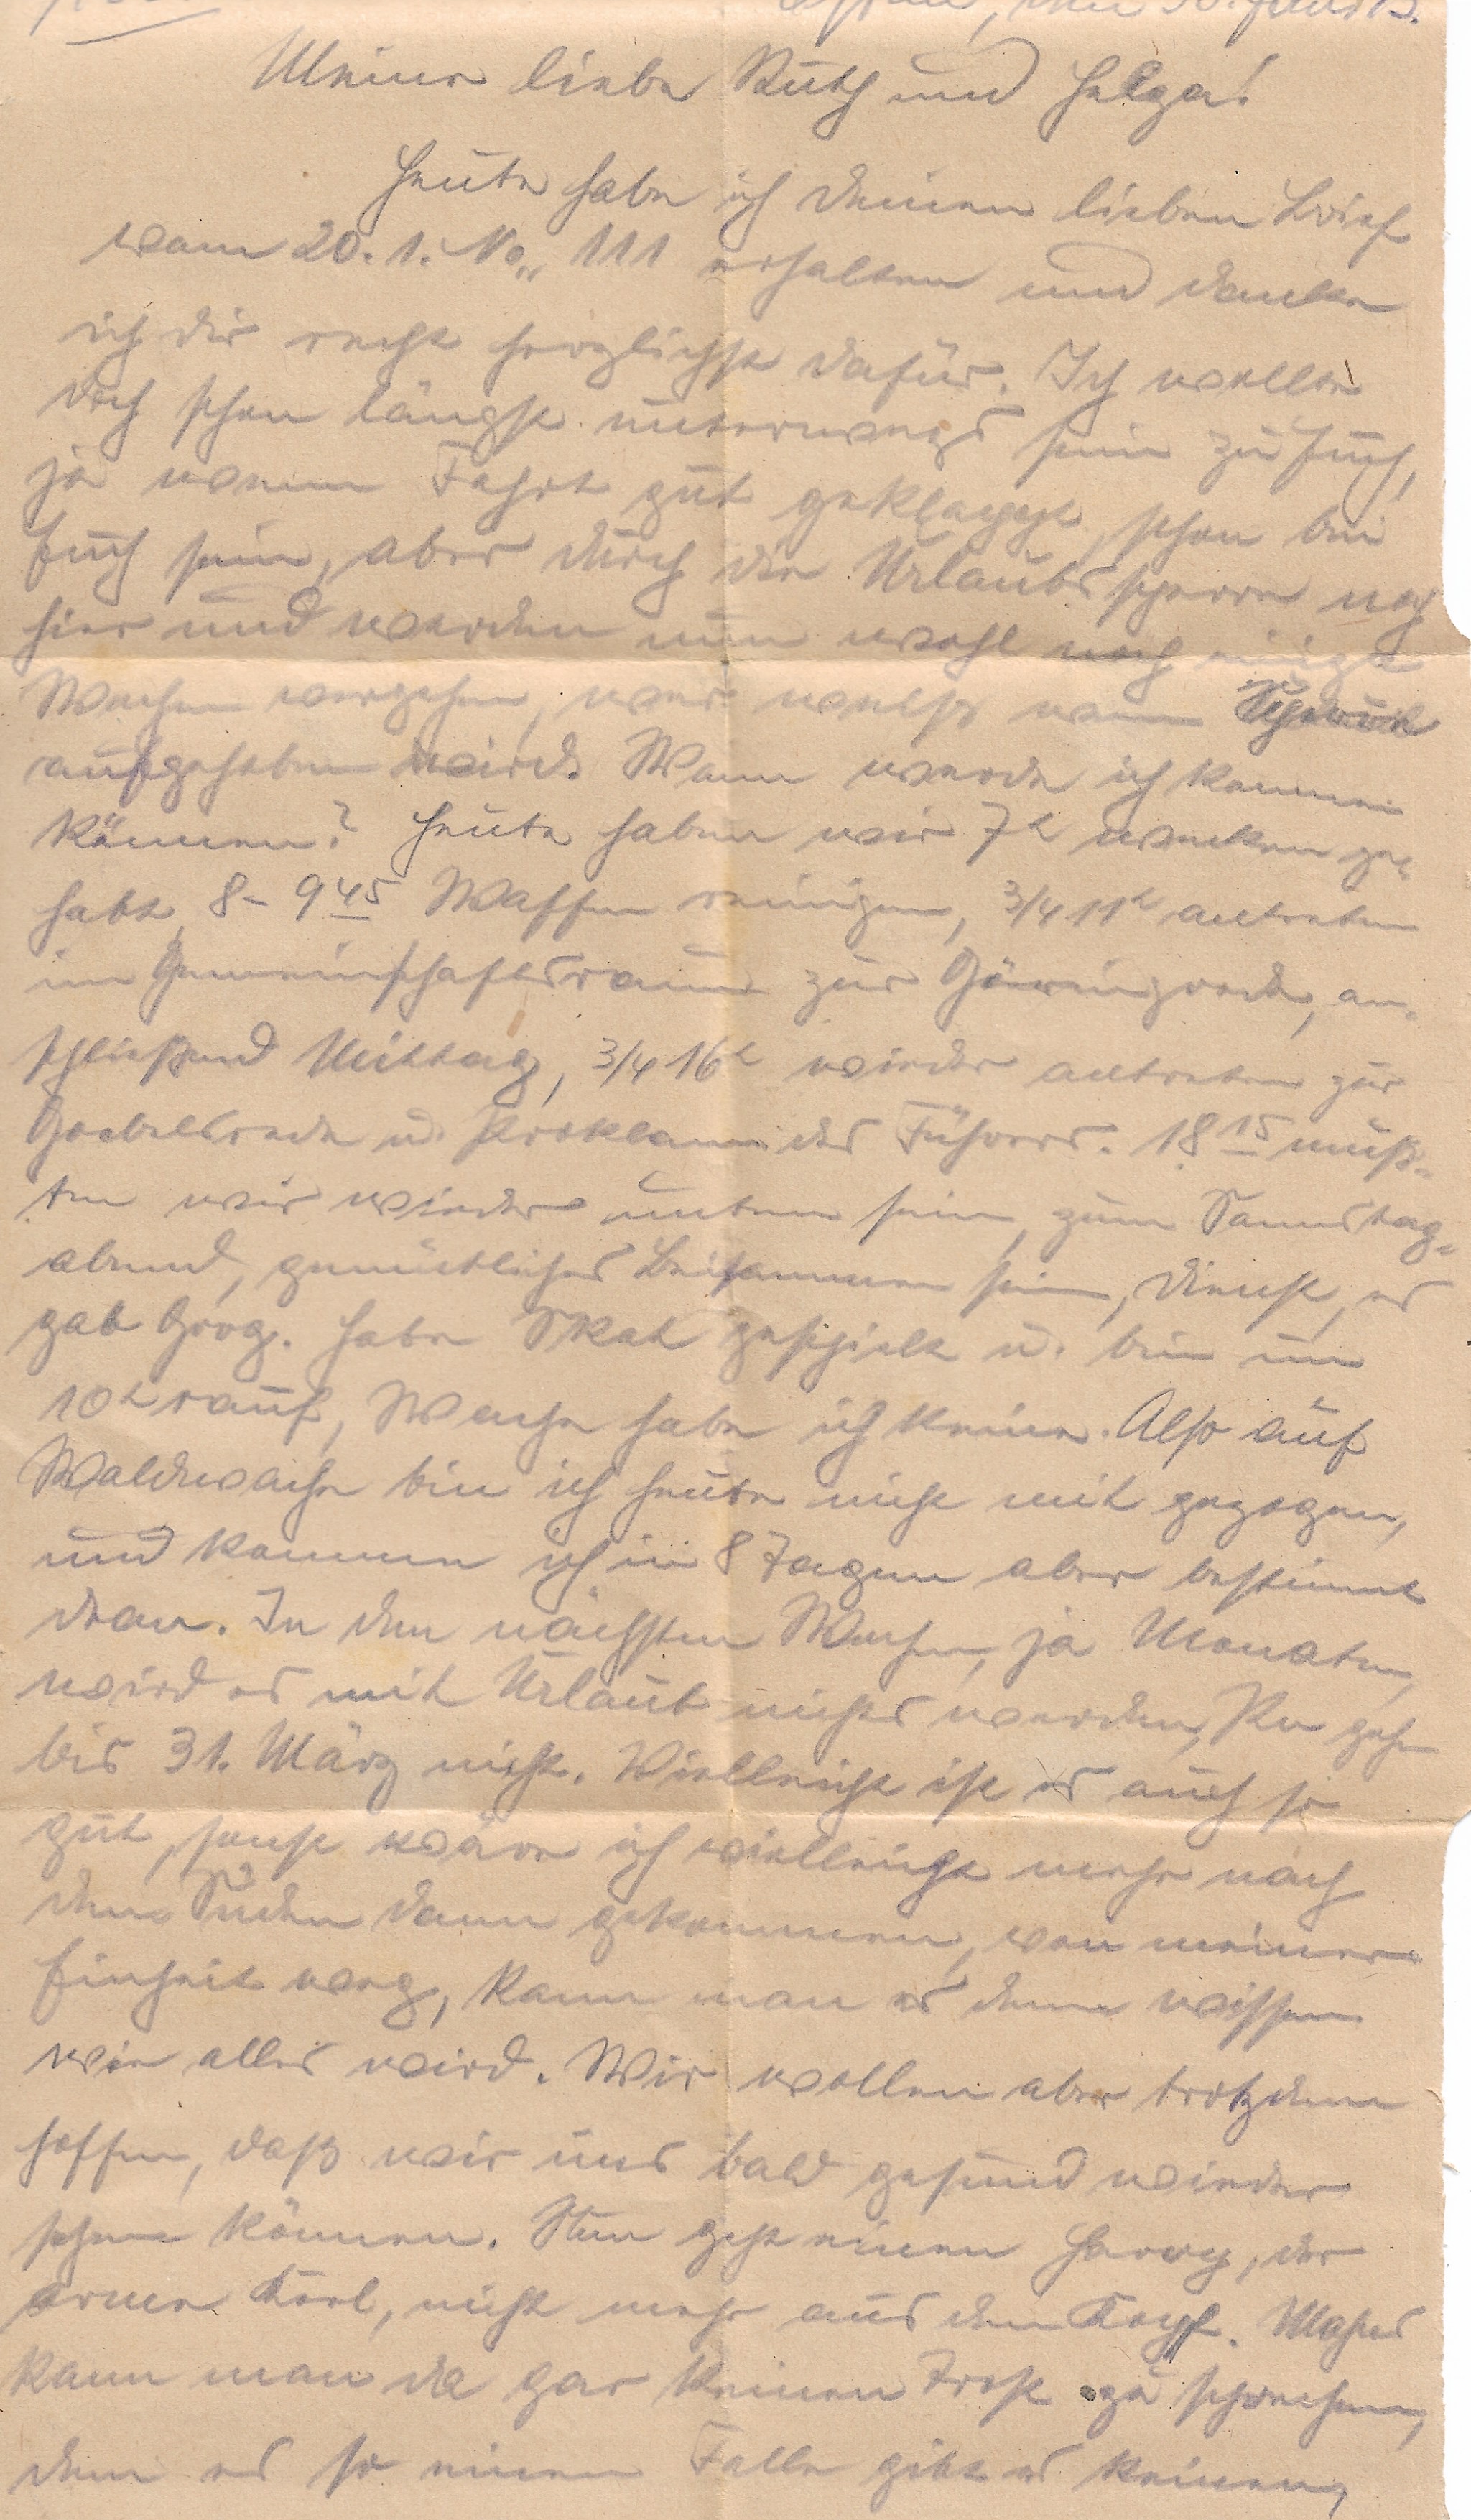 den 30. Januar 43.
Meine liebe Ruth und Helga!
Heute habe ich deinen lieben Brief
vom 20.1. No„ 111 erhalten und danke
ich dir recht herzlichst dafür. Ich wollte
doch schon längst unterwegs sein zu Euch,
ja wenn Fahrt gut geklappt, schon bei
Euch sein, aber durch die Urlaubssperre noch
hier und werden nun wohl noch einige
Wochen vergehen, wer weiß wenn Sperre
aufgehoben wird. Wann werde ich kommen
können? Heute haben wir 7h wecken ge-
habt, 8 - 9 45 Waffen reinigen, 3/4 11h antreten
im Gemeinschaftsraum zur Göringrede, an-
schließend Mittag, 3/4 16h wieder antreten zur
Goebelsrede u. Proklam. des Führers. 18 15 muß-
ten wir wieder unten sein, zum Samstag-
abend, gemütliches Beisammen sein, Dienst, es
gab Grog. Habe Skat gespielt u. bin um
10h rauf, Wache habe ich keine. Also auf
Waldwache bin ich heute nicht mit gezogen,
und komme ich in 8 Tagen aber bestimmt
dran. In den nächsten Wochen, ja Monaten,
wird es mit Urlaub nichts werden, Ku gehe
bis 31. März nicht. Vielleicht ist es auch so
gut, sonst wäre ich vielleicht mehr nach
dem Süden dann gekommen, von meiner
Einheit weg, kann man es denn wissen
wie alles wird. Wir wollen aber trotzdem
hoffen, daß wir uns bald gesund wieder
sehen können. Nun geht einem Harry, der
arme Kerl, nicht mehr aus dem Kopf.
kann man da gar keinen Trost zu sprechen,
denn es so einem Falle gibt es keinen,